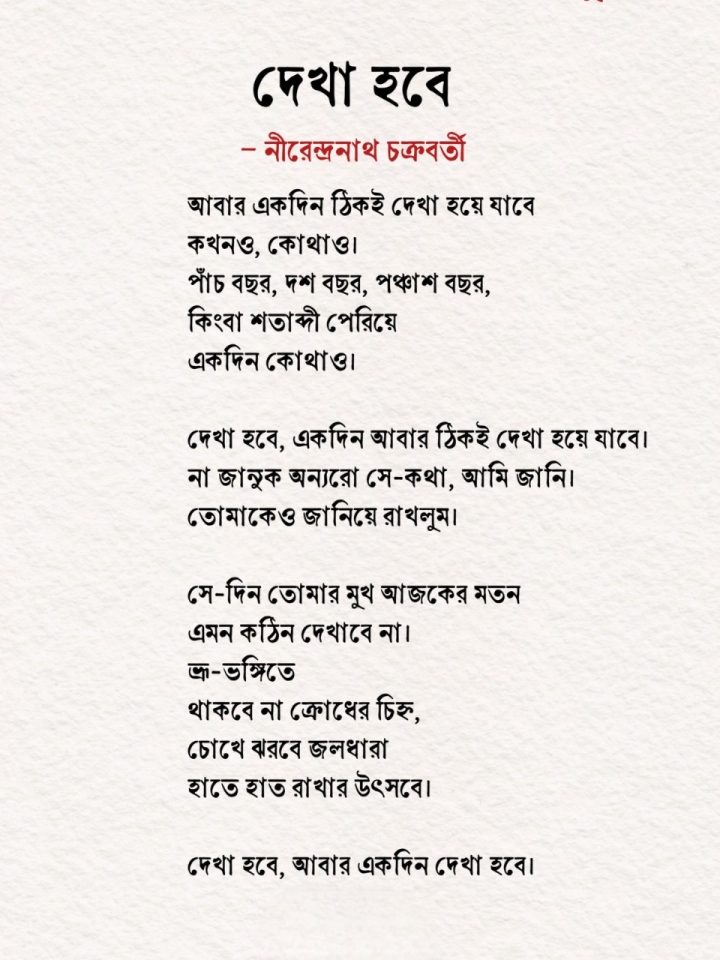 দেখা হবে
– নীরেন্দ্রনাথ চক্রবর্তী
আবার একদিন ঠিকই দেখা হয়ে যাবে
কখনও, কোথাও।
পাঁচ বছর, দশ বছর, পঞ্চাশ বছর,
কিংবা শতাব্দী পেরিয়ে
একদিন কোথাও।
দেখা হবে, একদিন আবার ঠিকই দেখা হয়ে যাবে।
না জানুক অন্যরো সে-কথা, আমি জানি।
তোমাকেও জানিয়ে রাখলুম।
সে-দিন তোমার মুখ আজকের মতন
এমন কঠিন দেখাবে না।
ভ্রূ-ভঙ্গিতে
থাকবে না ক্রোধের চিহ্ন,
চোখে ঝরবে জলধারা
হাতে হাত রাখার উৎসবে।
দেখা হবে, আবার একদিন দেখা হবে।